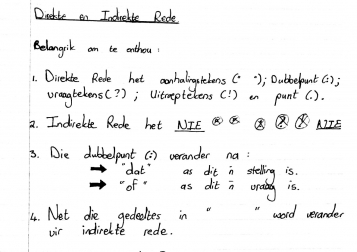 Direkte en Indirekte Rede.
Belangrik om te onthou :
1. Direkte Rede het aanhalingstekens (" "); Dubbelpunt (:);
vraagtekens (?) ; Uitroeptekens (!) en punt (.).
2. Indirekte Rede het NIE NIE
3. Die dubbelpunt (:) verander na :
"dat" as dit 'n stelling is.
"of" as dit 'n vraag is.
4. Net die gedeeltes in " " word verander
vir indirekte rede.